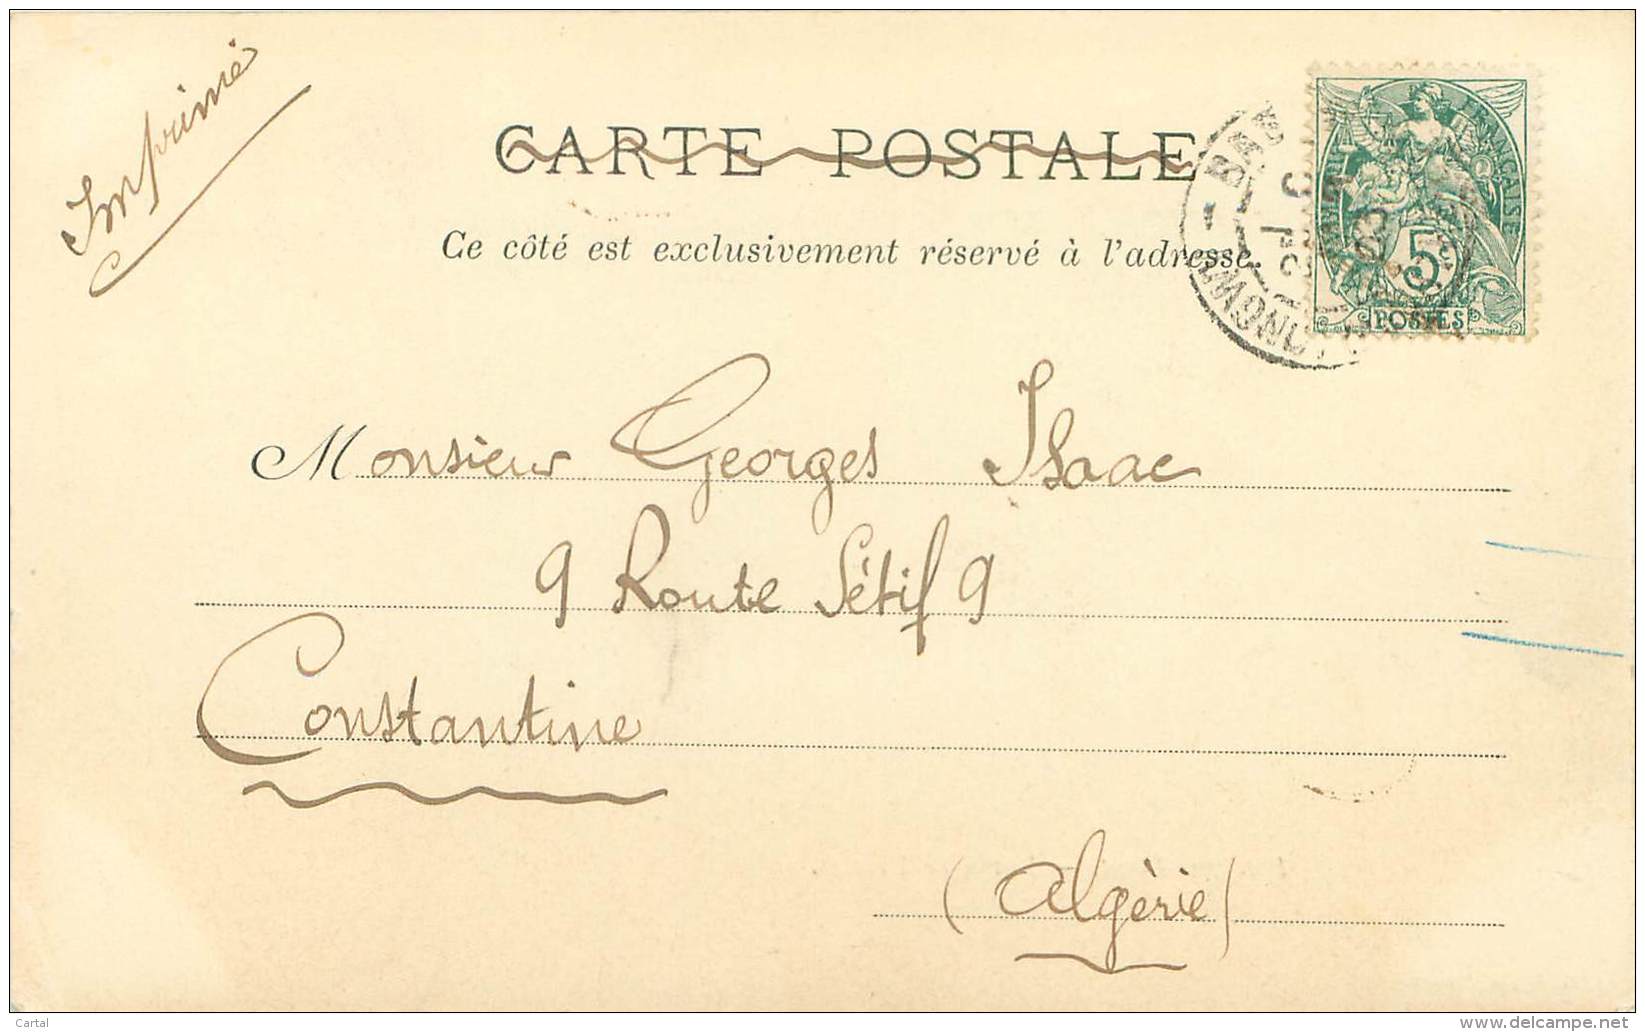 Imprimé
CARTE POSTALE
Ce côté est exclusivement réservé à l'adresse.
FRANÇAISE
5
POSTES
Monsieur Georges Isaac
9 Route Sétif 9
Constantine
(Algérie)
Cartal
www.delcampe.net